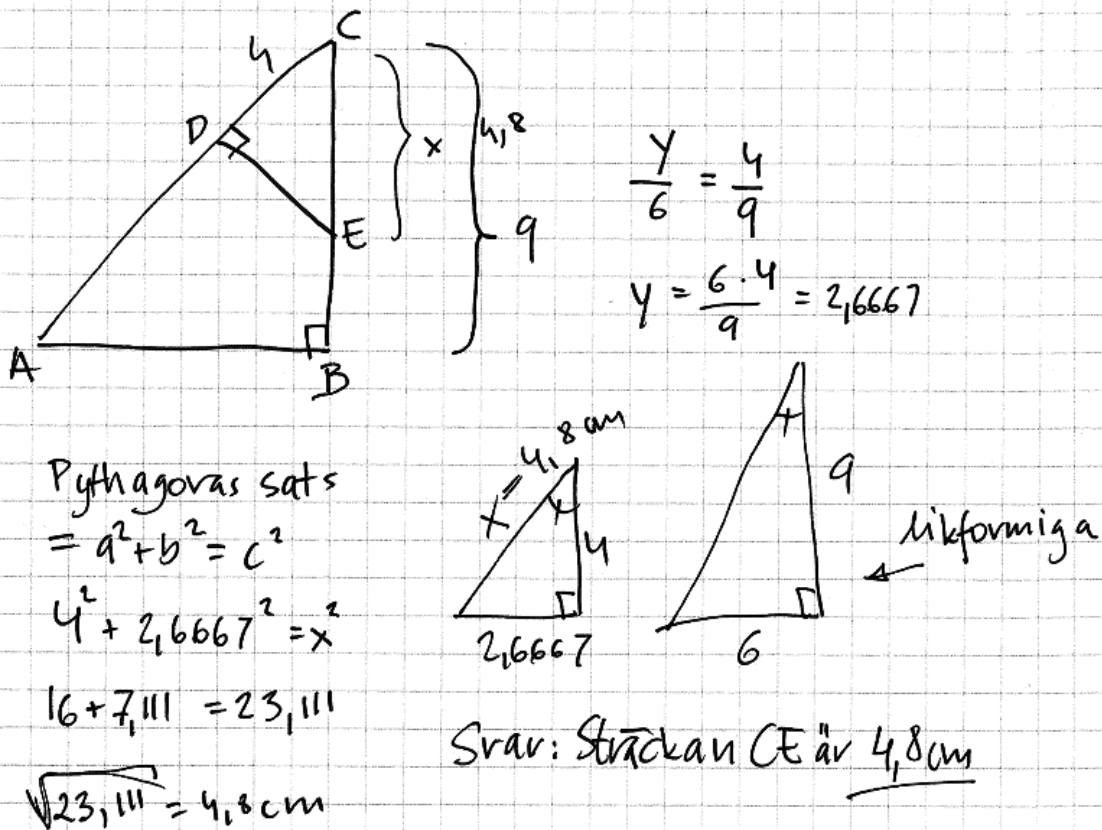 C
4
D
x
4,8
E
9
A
B
y/6 = 4/9
y = 6·4/9 = 2,6667
Pythagoras sats
= a²+b² = c²
4² + 2,6667² = x²
16+7,111 = 23,111
√23,111 = 4,8 cm
x = 4,8 cm
4
2,6667
9
6
likformiga
Svar: Sträckan CE är 4,8 cm